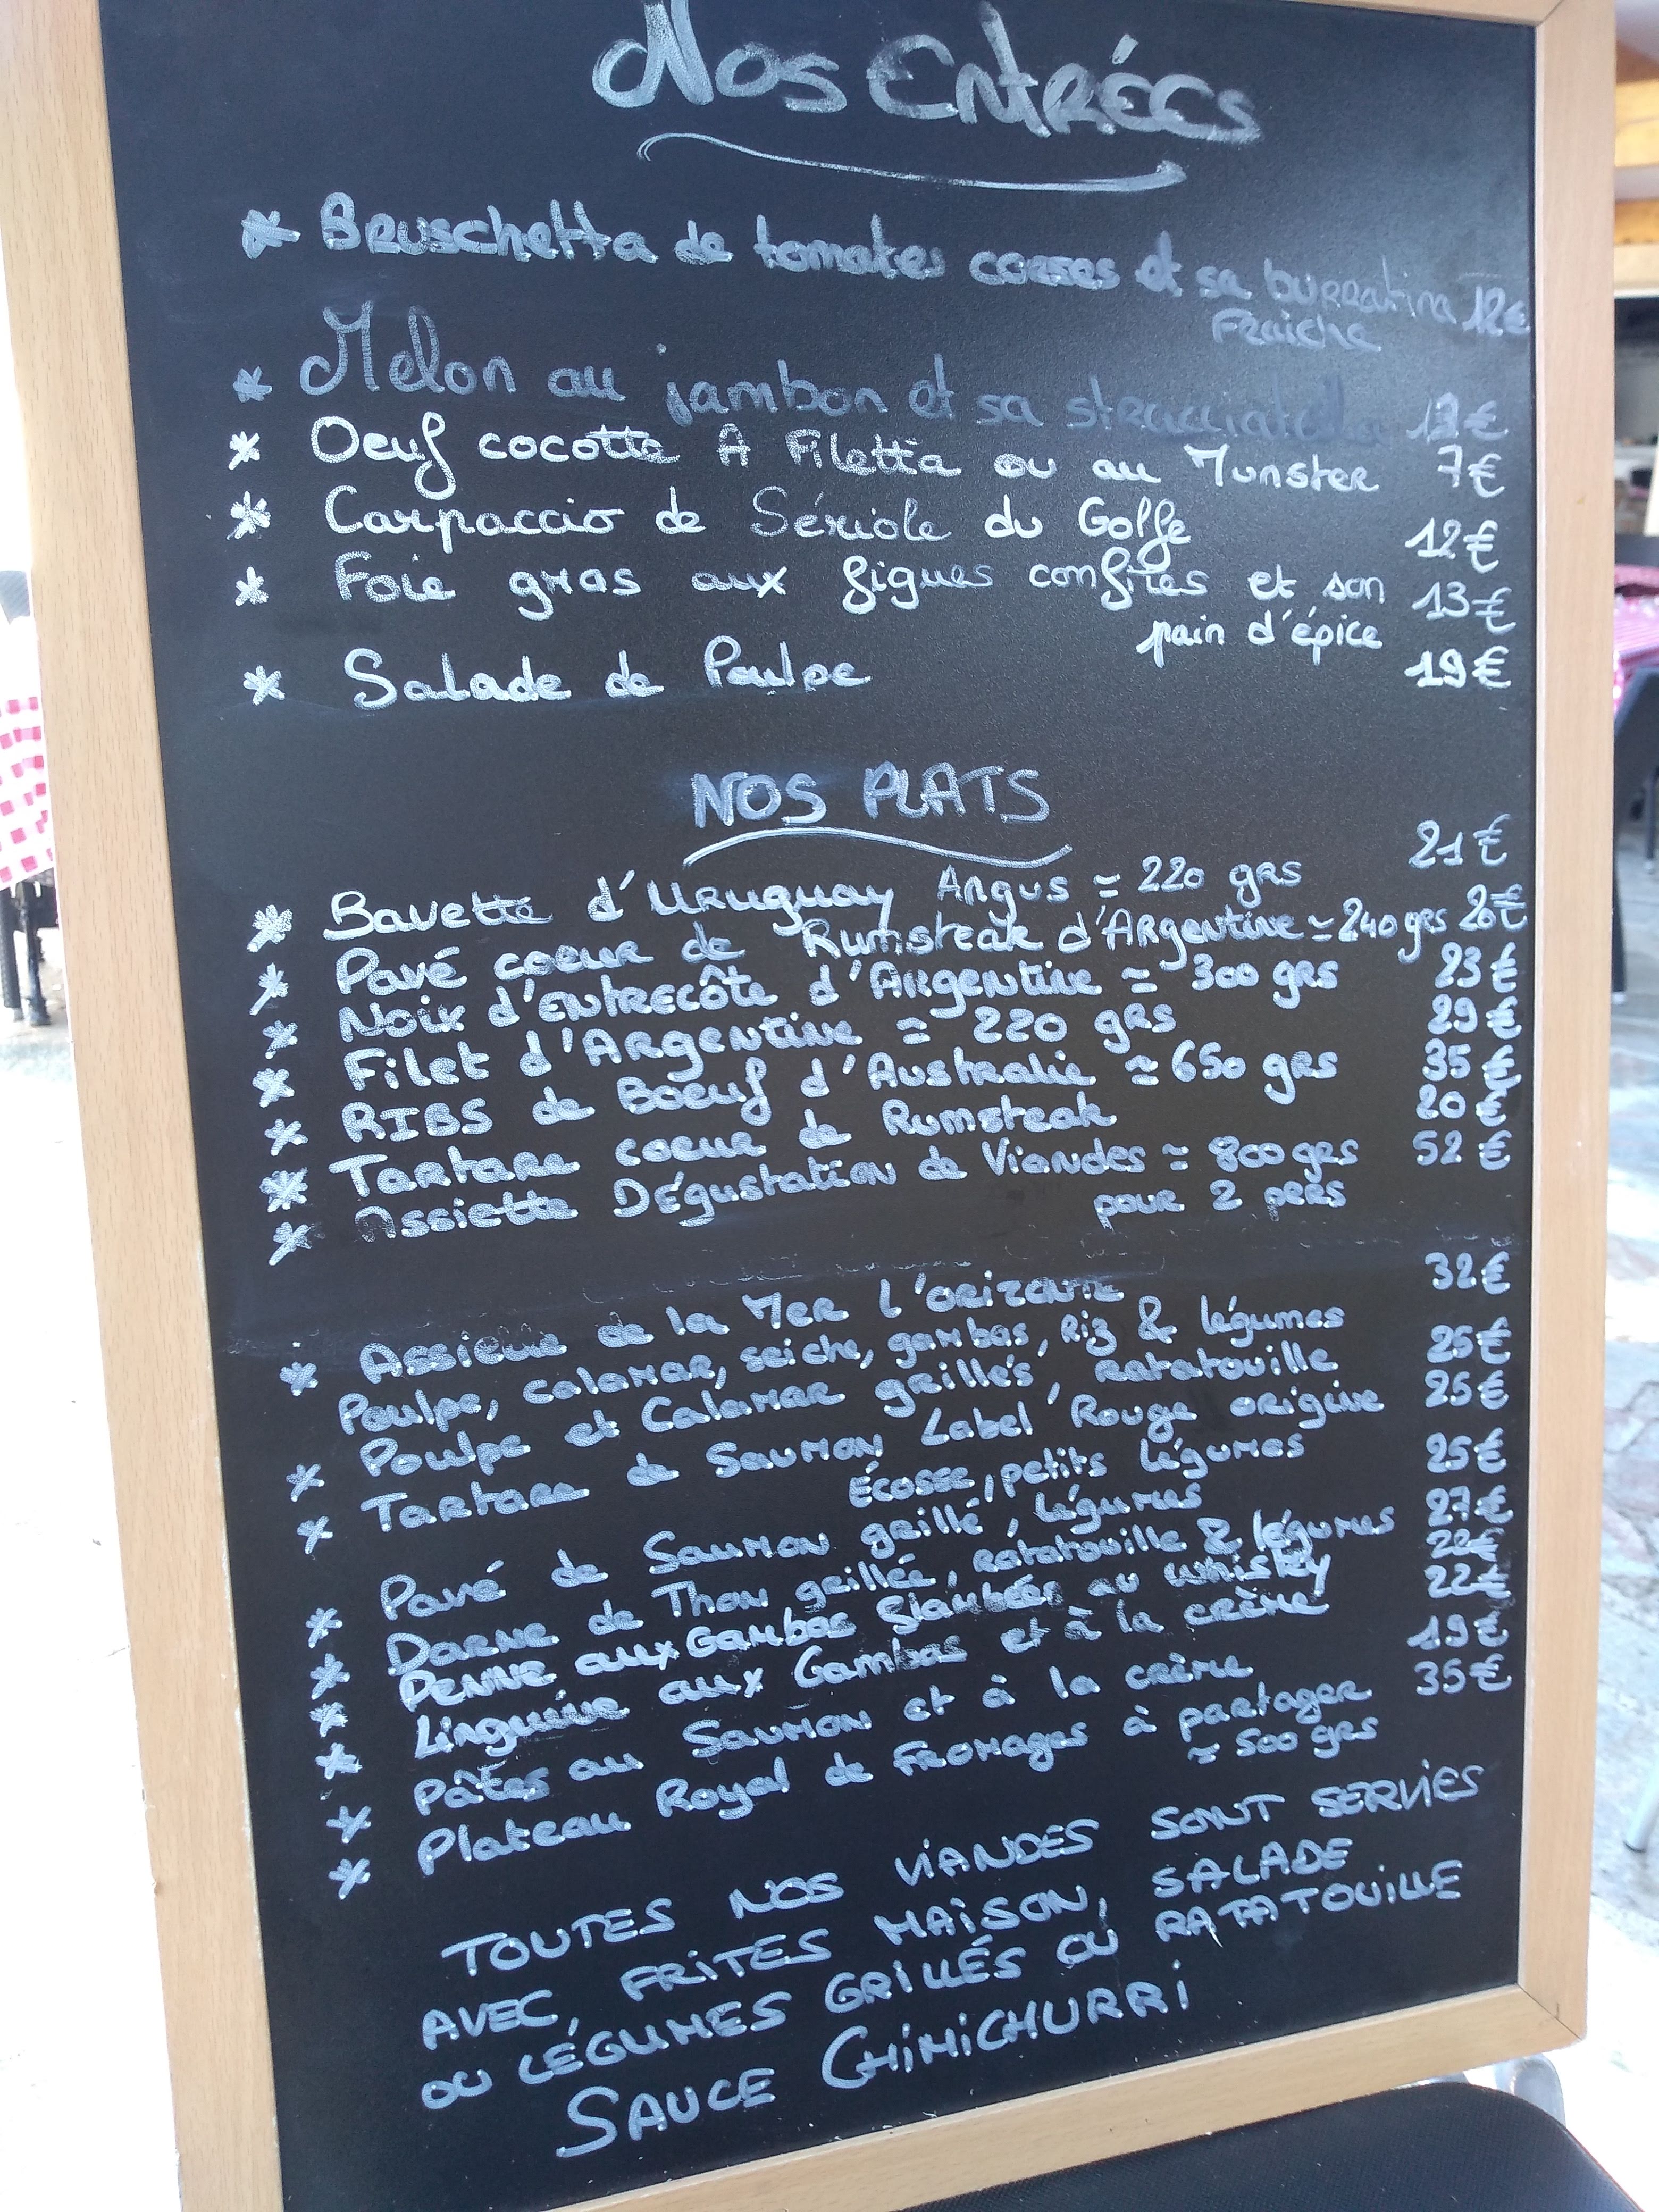 Nos Entrées
* Bruschetta de tomates corses et sa burratina 12€
Fraiche
* Melon au jambon et sa stracciatella 13€
* Oeuf cocotte A Filetta ou au Munster 7€
* Carpaccio de Sériole du Golfe 12€
* Foie gras aux figues confites et son 13€
pain d'épice
* Salade de Poulpe 19€
NOS PLATS
* Bavette d'Uruguay Angus ≃ 220 grs 21€
* Pavé coeur de Rumsteak d'Argentine ≃ 240 grs 20€
* Noix d'Entrecôte d'Argentine ≃ 300 grs 23€
* Filet d'Argentine ≃ 220 grs 29€
* RIBS de Boeuf d'Australie ≃ 650 grs 35€
* Tartare coeur de Rumsteak 20€
* Assiette Dégustation de Viandes ≃ 800 grs 52€
pour 2 pers
* Assiette de la Mer L'orizonte 32€
Poulpe, calamar, seiche, gambas, Riz & légumes
* Poulpe et Calamar grillés, Ratatouille 25€
* Tartare de Saumon Label Rouge origine 25€
Écosse, petits légumes
* Pavé de Saumon grillé, légumes 25€
* Darne de Thon grillée, ratatouille & légumes 27€
* Penne aux Gambas flambées au whisky 22€
* Linguine aux Gambas et à la crème 22€
* Pâtes au Saumon et à la crème 19€
* Plateau Royal de Fromages à partager 35€
≃ 500 grs
TOUTES NOS VIANDES SONT SERVIES
AVEC, FRITES MAISON, SALADE
OU LÉGUMES GRILLÉS OU RATATOUILLE
SAUCE CHIMICHURRI